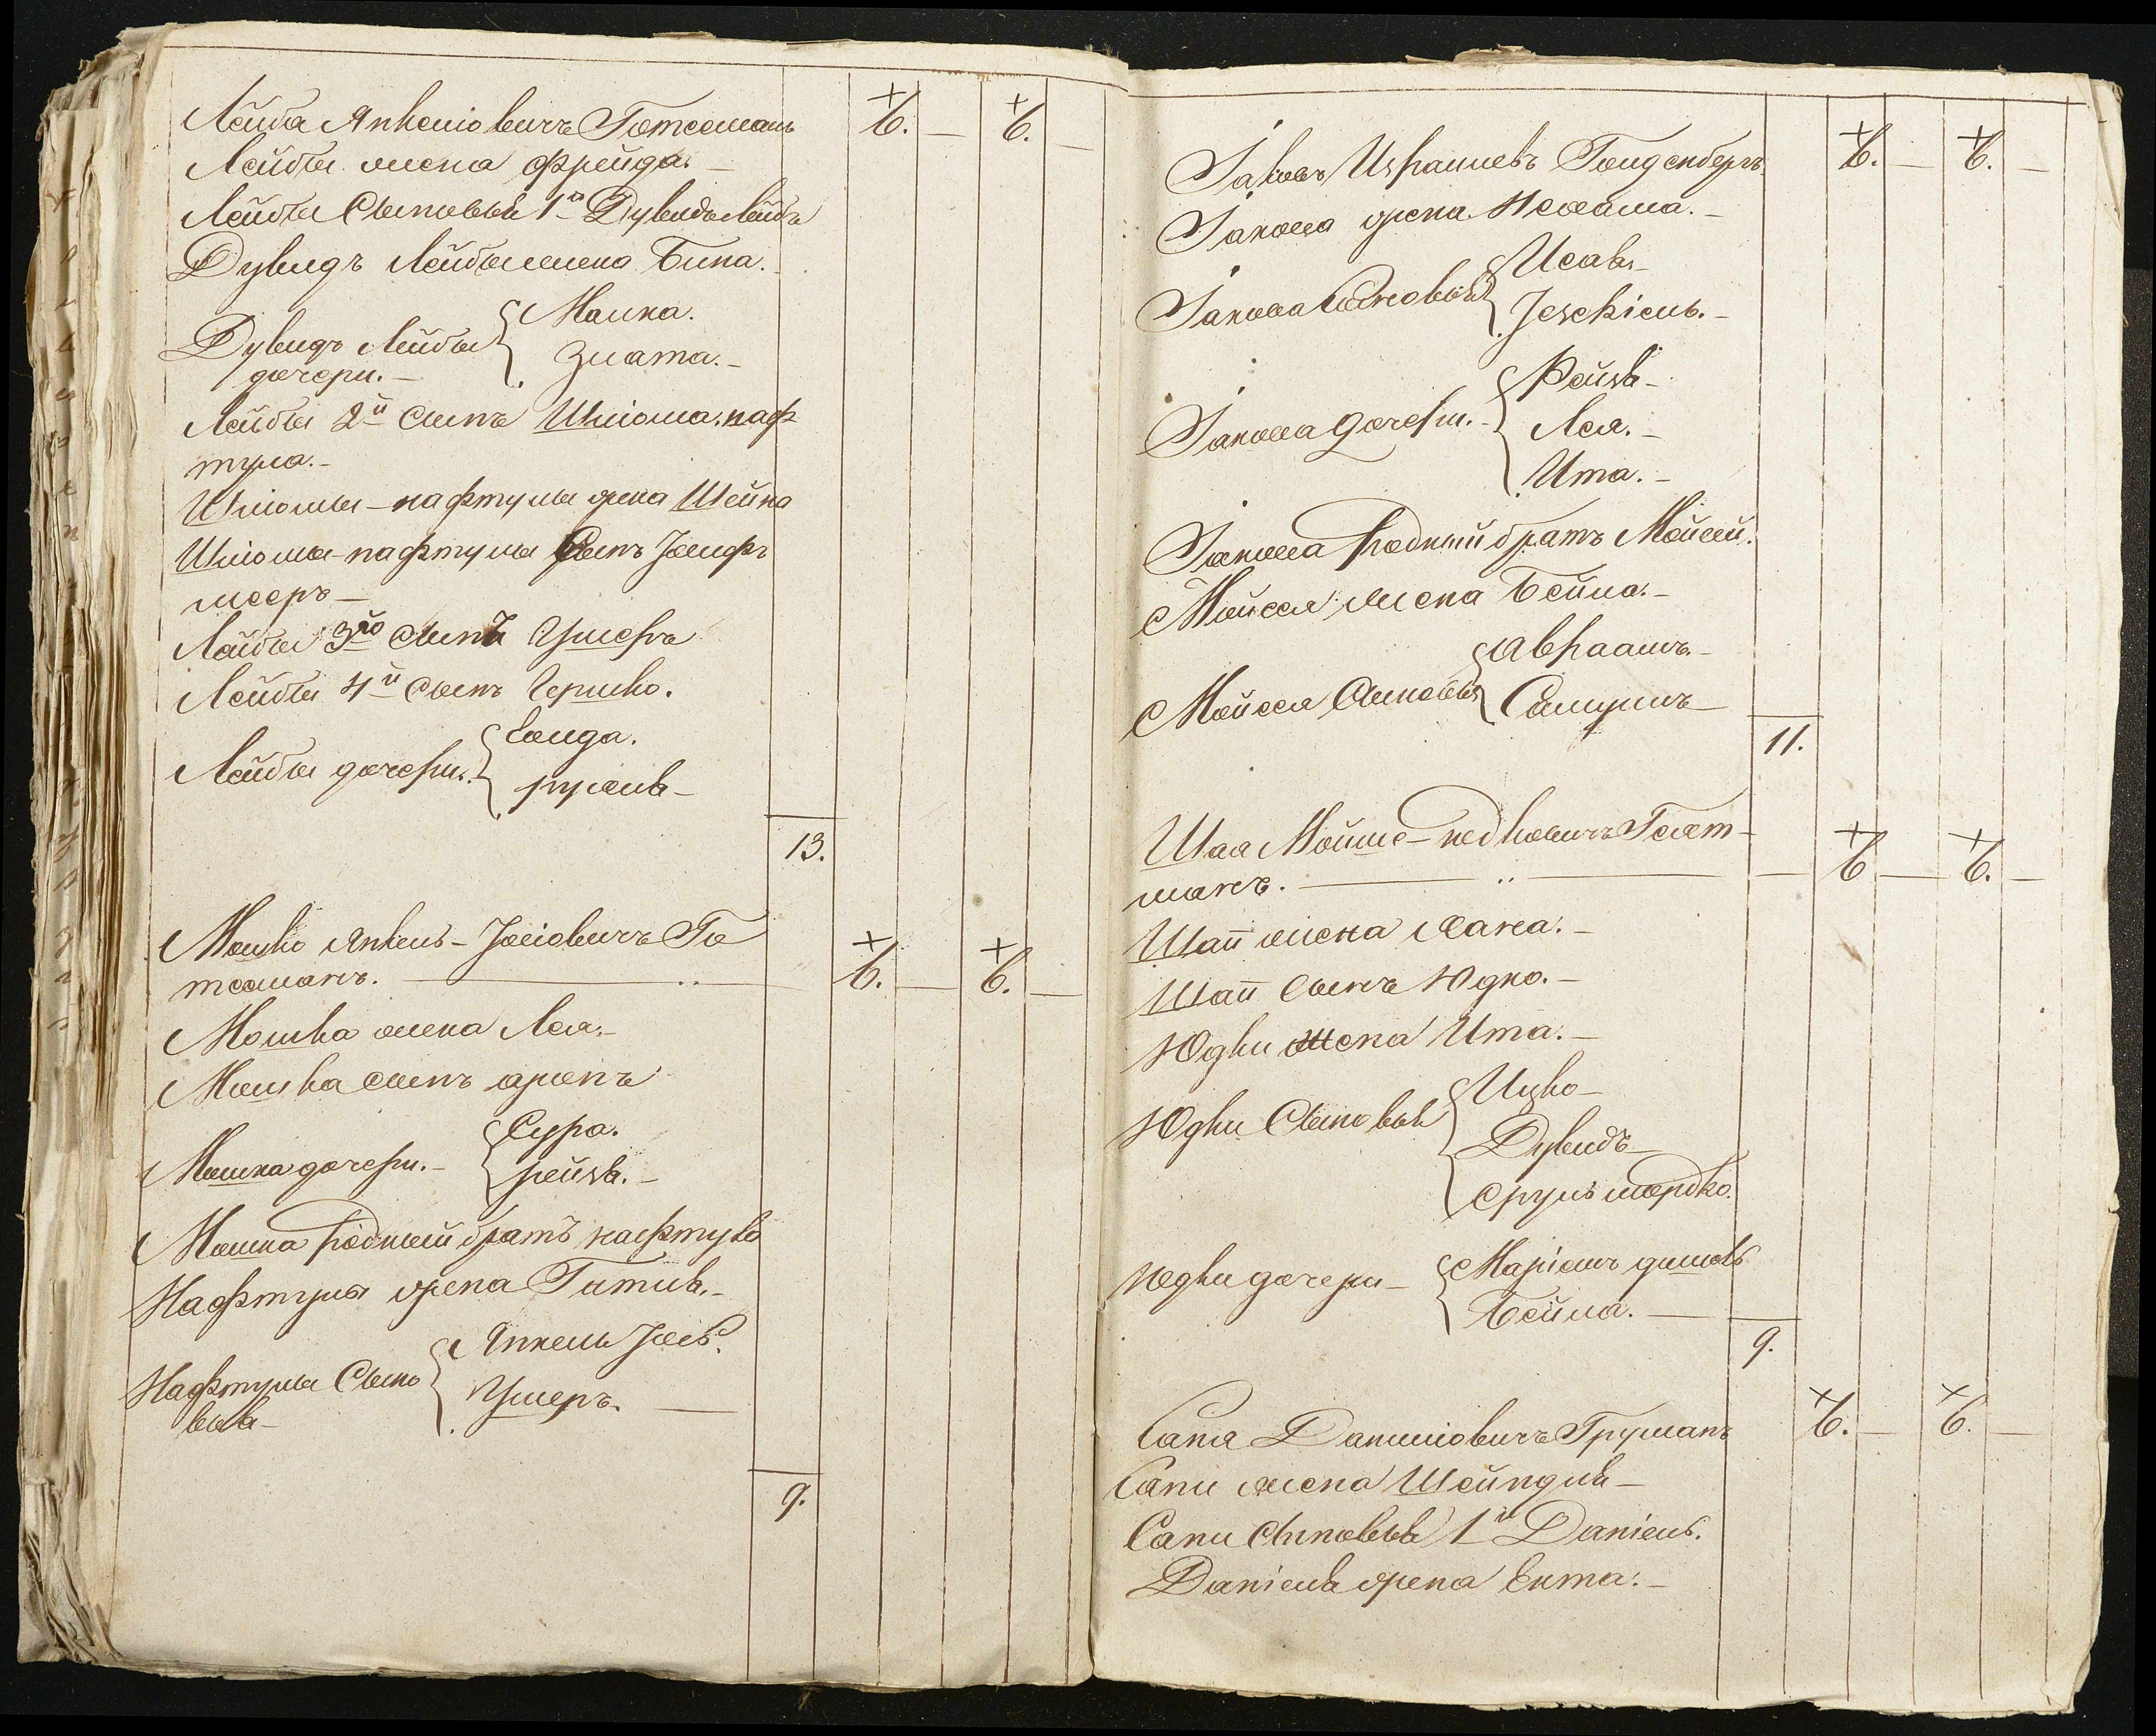 Лейба Янкеліовичъ Готесманъ + 6. — + 6. —
Лейбы жена Фрейда. —
Лейбы Сыновья 1й Дувидъ Лейбъ
Дувидъ Лейбы жена Бина.
Дувидъ Лейбы дочери. — { Малка.
Злата. —
Лейбы 2й сынъ Шліома наф-
тула. —
Шліомы-нафтулы жена Шейна
Шліомы-нафтулы Сынъ Іосифъ
мееръ —
Лейбы 3й сынъ Ушеръ
Лейбы 4й сынъ Гершко.
Лейбы дочери. { Голда.
рухля —
13.
Мошко Янкель-Іосіовичъ Го
тесманъ. — + 6. — + 6. —
Мошка жена Лея. —
Мошка сынъ аронъ
Мошка дочери. — { Сура.
рейзя. —
Мошка родный братъ нафтула
Нафтулы жена Гитля. —
Нафтулы Сыно
вья — { Янкель Іосъ.
Ушеръ. —
9.
Іаковъ Израилевъ Голденбергъ + 6. — + 6. —
Іакова жена Нехама. —
Іакова Сыновья { Исакъ —
Іезекіель. —
Іакова дочери. — { Рейзя —
Лея. —
Ита. —
Іакова родный братъ Мойсей.
Мойсея жена Бейла. —
Мойсея Сыновья { Авраамъ —
Самуилъ —
11.
Шая Мойше-педковичъ Гелт-
манъ. — + 6 — + 6. —
Шаи жена Хана. —
Шаи Сынъ Юдко. —
Юдки жена Ита. —
Юдки Сыновья { Ицко —
Дувидъ —
Сруль мордко.
Юдки дочери — { Маріемъ димова
Бейла. —
9.
Саня Даниліовичъ Груманъ + 6. — + 6. —
Сани жена Шейндля —
Сани Сыновья 1й Даніель.
Даніеля жена Ента. —